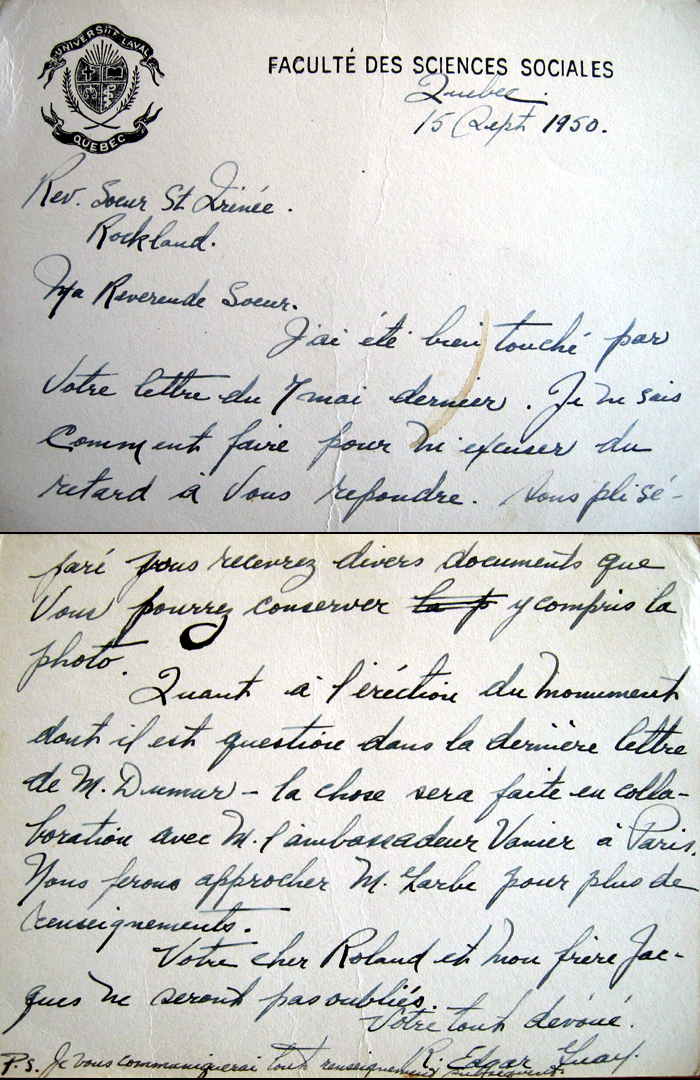 UNIVERSITÉ LAVAL
QUÉBEC
FACULTÉ DES SCIENCES SOCIALES
Quebec
15 Sept 1950.
Rev. Soeur St Irinée.
Rockland.
Ma Reverende Soeur.
J'ai été bien touché par
Votre lettre du 7 mai dernier. Je ne sais
Comment faire pour m'excuser du
retard à Vous repondre. Sous pli sé-
paré vous recevrez divers documents que
Vous pourrez conserver la p y compris la
photo.
Quant à l'éréction du monument
dont il est question dans la dernière lettre
de M. Dumur - la chose sera faite en colla-
boration avec M. l'ambassadeur Vanier à Paris.
Nous ferons approcher M. Garbe pour plus de
renseignements.
Votre cher Roland et mon frère Jac-
ques ne seront pas oubliés.
Votre tout dévoué.
R. Edgar Guay.
P.S. Je vous communiquerai tout renseignement